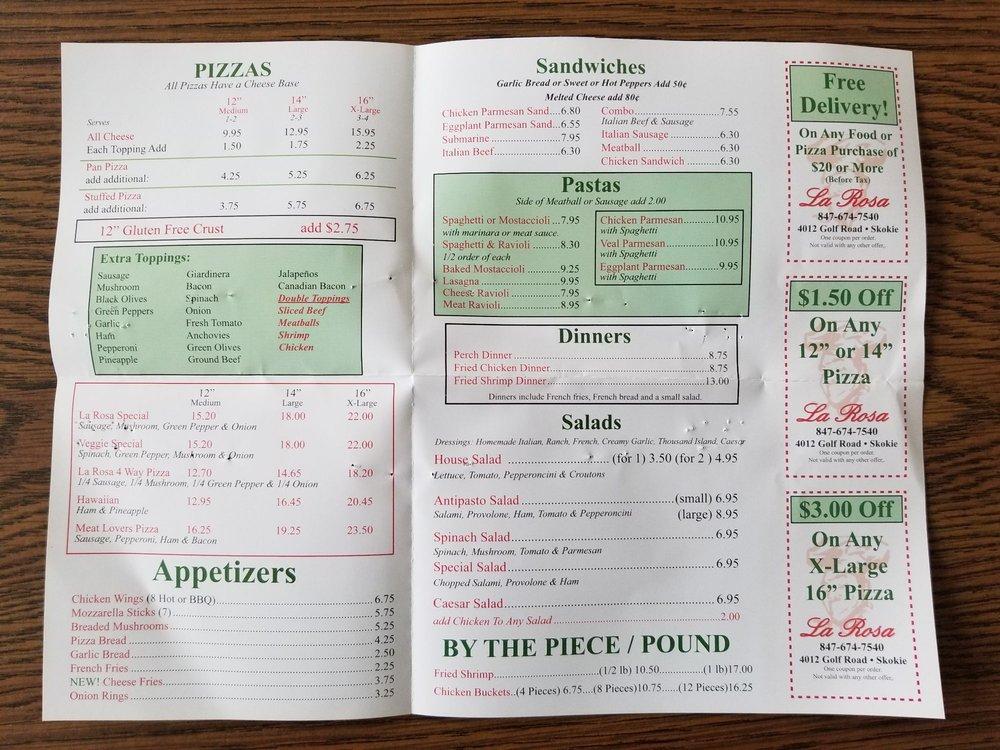 PIZZAS
All Pizzas Have a Cheese Base
12" 14" 16"
Medium Large X-Large
Serves 1-2 2-3 3-4
All Cheese 9.95 12.95 15.95
Each Topping Add 1.50 1.75 2.25
Pan Pizza
add additional: 4.25 5.25 6.25
Stuffed Pizza
add additional: 3.75 5.75 6.75
12" Gluten Free Crust add $2.75
Extra Toppings:
Sausage Giardinera Jalapeños
Mushroom Bacon Canadian Bacon
Black Olives Spinach Double Toppings
Green Peppers Onion Sliced Beef
Garlic Fresh Tomato Meatballs
Ham Anchovies Shrimp
Pepperoni Green Olives Chicken
Pineapple Ground Beef
12" 14" 16"
Medium Large X-Large
La Rosa Special 15.20 18.00 22.00
Sausage, Mushroom, Green Pepper & Onion
Veggie Special 15.20 18.00 22.00
Spinach, Green Pepper, Mushroom & Onion
La Rosa 4 Way Pizza 12.70 14.65 18.20
1/4 Sausage, 1/4 Mushroom, 1/4 Green Pepper & 1/4 Onion
Hawaiian 12.95 16.45 20.45
Ham & Pineapple
Meat Lovers Pizza 16.25 19.25 23.50
Sausage, Pepperoni, Ham & Bacon
Appetizers
Chicken Wings (8 Hot or BBQ)...6.75
Mozzarella Sticks (7)...5.75
Breaded Mushrooms...5.25
Pizza Bread...4.25
Garlic Bread...2.50
French Fries...2.25
NEW! Cheese Fries...3.75
Onion Rings...3.25
Sandwiches
Garlic Bread or Sweet or Hot Peppers Add 50¢
Melted Cheese add 80¢
Chicken Parmesan Sand....6.80
Eggplant Parmesan Sand...6.55
Submarine...7.95
Italian Beef...6.30
Combo...7.55
Italian Beef & Sausage
Italian Sausage...6.30
Meatball...6.30
Chicken Sandwich...6.30
Pastas
Side of Meatball or Sausage add 2.00
Spaghetti or Mostaccioli...7.95
with marinara or meat sauce.
Spaghetti & Ravioli...8.30
1/2 order of each
Baked Mostaccioli...9.25
Lasagna...9.95
Cheese Ravioli...7.95
Meat Ravioli...8.95
Chicken Parmesan...10.95
with Spaghetti
Veal Parmesan...10.95
with Spaghetti
Eggplant Parmesan...9.95
with Spaghetti
Dinners
Perch Dinner...8.75
Fried Chicken Dinner...8.75
Fried Shrimp Dinner...13.00
Dinners include French fries, French bread and a small salad.
Salads
Dressings: Homemade Italian, Ranch, French, Creamy Garlic, Thousand Island, Caesar
House Salad ...(for 1) 3.50 (for 2 ) 4.95
Lettuce, Tomato, Pepperoncini & Croutons
Antipasto Salad...(small) 6.95
Salami, Provolone, Ham, Tomato & Pepperoncini (large) 8.95
Spinach Salad...6.95
Spinach, Mushroom, Tomato & Parmesan
Special Salad...6.95
Chopped Salami, Provolone & Ham
Caesar Salad...6.95
add Chicken To Any Salad...2.00
BY THE PIECE / POUND
Fried Shrimp...(1/2 lb) 10.50...(1 lb)17.00
Chicken Buckets..(4 Pieces) 6.75....(8 Pieces)10.75......(12 Pieces)16.25
Free
Delivery!
On Any Food or
Pizza Purchase of
$20 or More
(Before Tax)
La Rosa
847-674-7540
4012 Golf Road • Skokie
One coupon per order.
Not valid with any other offer,.
$1.50 Off
On Any
12" or 14"
Pizza
La Rosa
847-674-7540
4012 Golf Road • Skokie
One coupon per order.
Not valid with any other offer,.
$3.00 Off
On Any
X-Large
16" Pizza
La Rosa
847-674-7540
4012 Golf Road • Skokie
One coupon per order.
Not valid with any other offer,.